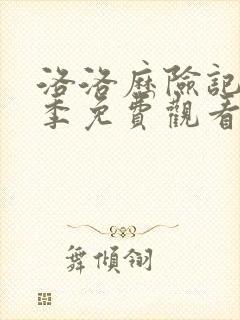 洛洛歷險記
季免費觀看
舞傾翎